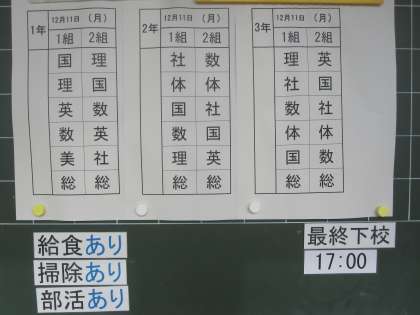 1年 12月11日 (月)
1組 2組
国 理
理 国
英 数
数 英
美 社
総 総
2年 12月11日 (月)
1組 2組
社 数
体 体
国 社
数 国
理 英
総 総
3年 12月11日 (月)
1組 2組
理 英
社 国
数 社
体 体
国 数
総 総
給食あり
掃除あり
部活あり
最終下校
17:00